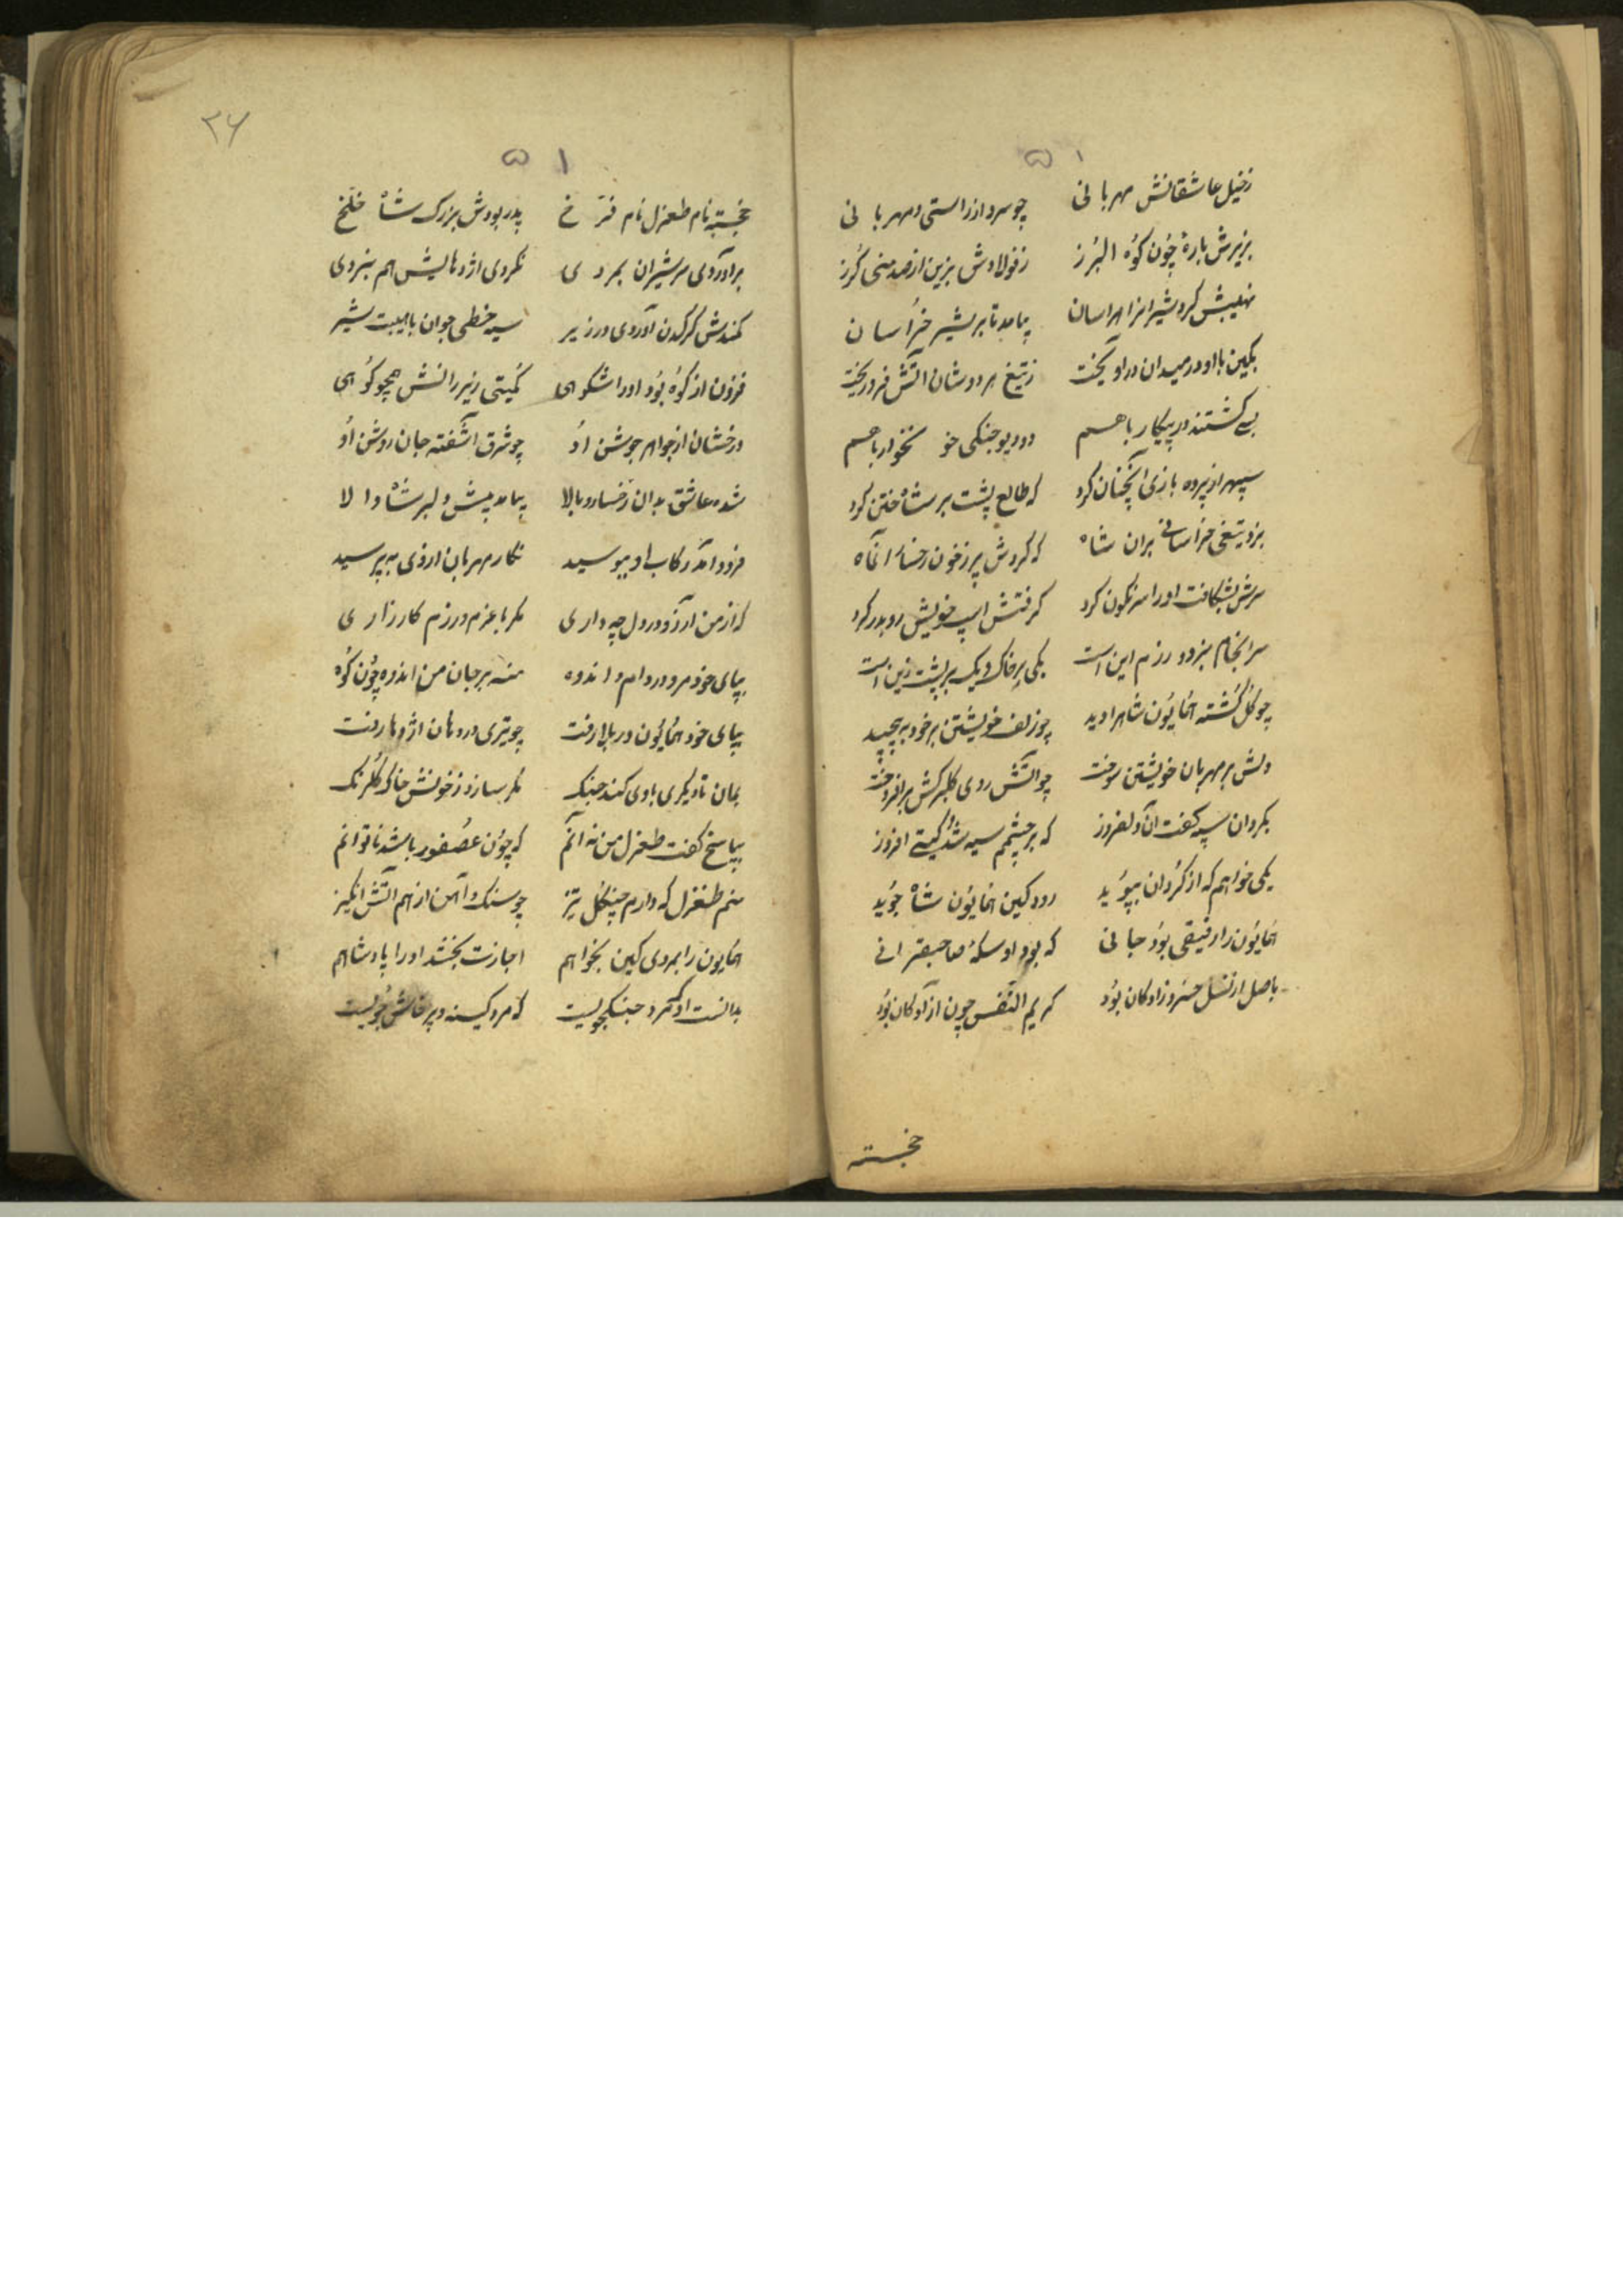 ۱۵
زخیل عاشقانش مهربانی چو سرو از راستی و مهربانی
بزیرش بارهٔ چون کوه البرز ز فولادش بزین از صد منی گرز
نهیبش کرد شیرانرا هراسان بیامد تا بر شیر خراسان
بکین با او در میدان در آویخت ز تیغ هر دوشان آتش فرو ریخت
بسی کشتند در پیکار باهم دو دیو جنکی خونخوار باهم
سپهر از پرده بازی آنچنان کرد که طالع پشت بر شاه ختن کرد
بزد تیغی خراسانی بران شاه که کردش پر ز خون رخسار آنماه
سرش بشکافت او را سرنکون کرد کرفتش اسپ خویش رو بدر کرد
سرانجام نبرد و رزم این است یکی بر خاک و یک بر پشت زین است
چو کل کشته همایون شاهرا دید چو زلف خویشتن بر خود به پیچید
دلش بر مهربان خویشتن سوخت چو آتش روی کلبرکش برافروخت
بکردان سپه کفت آن دلفروز که بر چشمم سیه شد کیتی افروز
یکی خواهم که از کردان بپوید رود کین همایون شاه جوید
همایون را رفیقی بود جانی که بود او سکهٔ صاحبقرانی
باصل از نسل خسروزادکان بود کریم النفس چون آزادکان بود
خجسته
۳۶
۱۵
خجسته نام طغرل نام فرخ پدر بودش بزرک شاه خلخ
برآوردی سر شیران بمردی نکردی اژدهایش هم نبردی
کمندش کرکدن آوردی در زیر سیه خطی جوان با هیبت شیر
فزون از کوه بود او را شکوهی کمیتی زیر رانش همچو کوهی
درخشان از جواهر جوشن او چو شرق آشفته جان روشن او
شده عاشق بدان رخسار و بالا بیامد پیش دلبر شاه والا
فرود آمد رکاب او ببوسید نکار مهربان از وی بپرسید
که از من آرزو در دل چه داری مکر با عزم و رزم کارزاری
بپای خود مرو در دام و اندوه منه بر جان من اندوه چون کوه
بپای خود همایون در بلا رفت چو تیری در دهان اژدها رفت
بمان تا دیکری با وی کند جنک مکر سازد ز خونش خاک کلرنک
بپاسخ کفت طغرل من نه آنم که چون عصفور باشد ناتوانم
منم طغرل که دارم چنکل تیز چو سنک و آهن از هم آتش انکیز
همایون را بمردی کین بخواهم اجازت بخشد او را پادشاهم
بدانست او که مرد جنکجویست که مرد کینه و پرخاش جویست